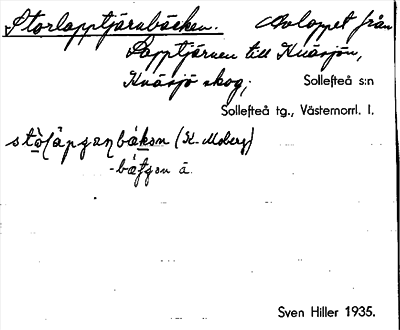 Storlapptjärnbäcken. Avloppet från
Lapptjärnen till Knäsjön,
Knäsjö skog; Sollefteå s:n
Sollefteå tg., Västernorrl. l.
(K. Moberg)
Sven Hiller 1935.